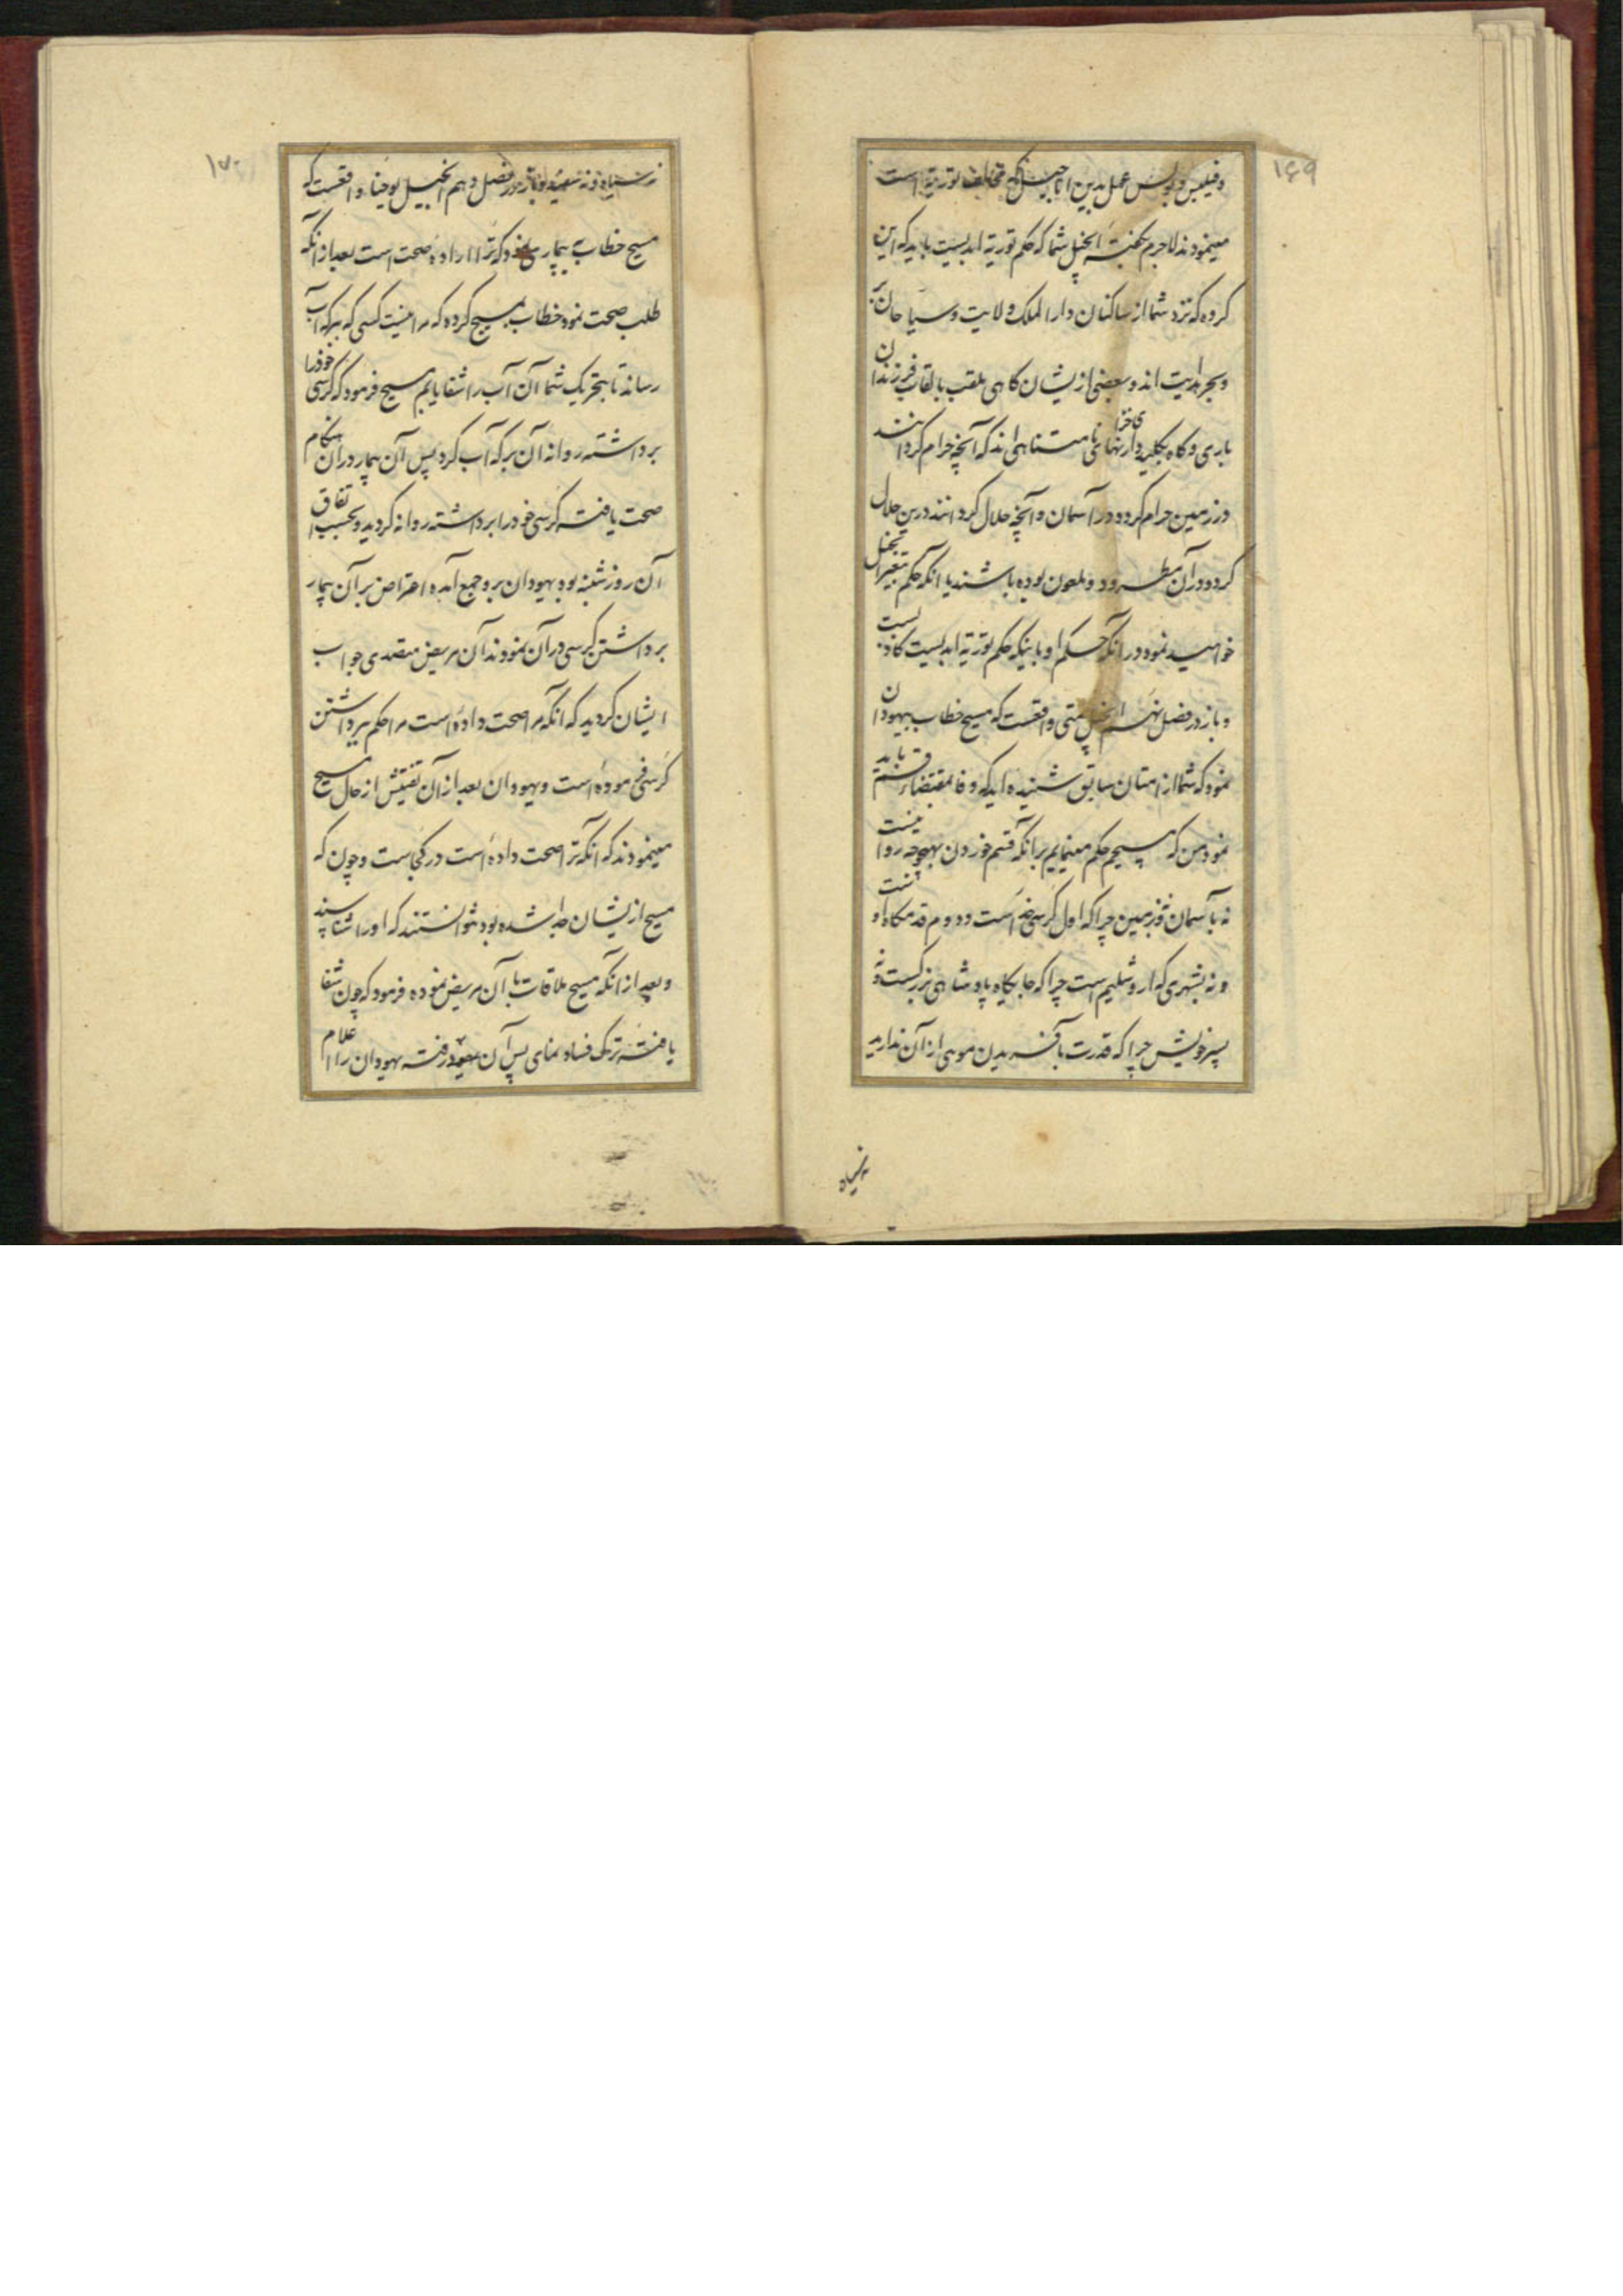 ۱۶۹
وفیلبس وپولس عمل بدین اناجیل که مخالف توریة است
مینمودند لاجرم بگفتهٔ انجیل شما که حکم توریة ابدیست باید که این
کروه که نزد شما از ساکنان دار الملک ولایت وسیاحان
وبحر ابدیت اند وبعضی ازیشان کاهی ملقب بالقاب فرزندان
باری وکاه بکلید دار خزانهای نامتناهی اند که آنچه حرام کردانند
درزمین حرام کردد در آسمان وآنچه حلال کردانند درین حلال
کردد در آن مطرود وملعون بوده باشند یا انکه حکم بتغیر انجیل
خواهید نمود در انکه حکم او باینکه حکم توریة ابدیست کاذبست
وباز در فصل نهم انجیل متی واقعست که مسیح خطاب بیهودان
نمود که شما از امتان سابق شنیده اید که وفا بمقتضاء قسم باید
نمود من که مسیحم حکم مینمایم برانکه قسم خوردن بهیچوجه روا نیست
نه بآسمان ونه بزمین چراکه اول کرسی خداست ودوم قدمکاه او
ونه بشهری که اروشلیم است چراکه جایکاه پادشاهی بزرکست ونه
بسر خویش چراکه قدرت بآفریدن موی از آن ندارید
نه سیاه
۱۷۰
نه سیاه ونه سفید وباز در فصل دهم انجیل یوحنا واقعست که
مسیح خطاب به بیماری نمود که ترا ارادهٔ صحت است بعد از انکه
طلب صحت نمود خطاب بمسیح کرده که مرا نیست کسی که ببرکه آب
رساند تا بتحریک شما آن آب را شفا یابم مسیح فرمود که کرسی خود را
برداشته روانه آن برکه آب کرد پس آن بیمار در آن هنکام
صحت یافته کرسی خود را برداشته روانه کردید وبحسب اتفاق
آن روز شنبه بود یهودان برو جمع آمده اعتراض بر آن بیمار
برداشتن کرسی در آن نمودند آن مریض متصدی جواب
ایشان کردید که انکه مرا صحت داده است مرا حکم ببرداشتن
کرسی فرموده است ویهودان بعد از آن تفتیش از حال مسیح
مینمودند که انکه ترا صحت داده است در کجاست وچون که
مسیح ازیشان جدا شده بود نتوانستند که او را شناسند
وبعد از انکه مسیح ملاقات با آن مریض نموده فرمود که چون شفا
یافته ترک فساد نمای پس آن رفته یهودان را اعلام